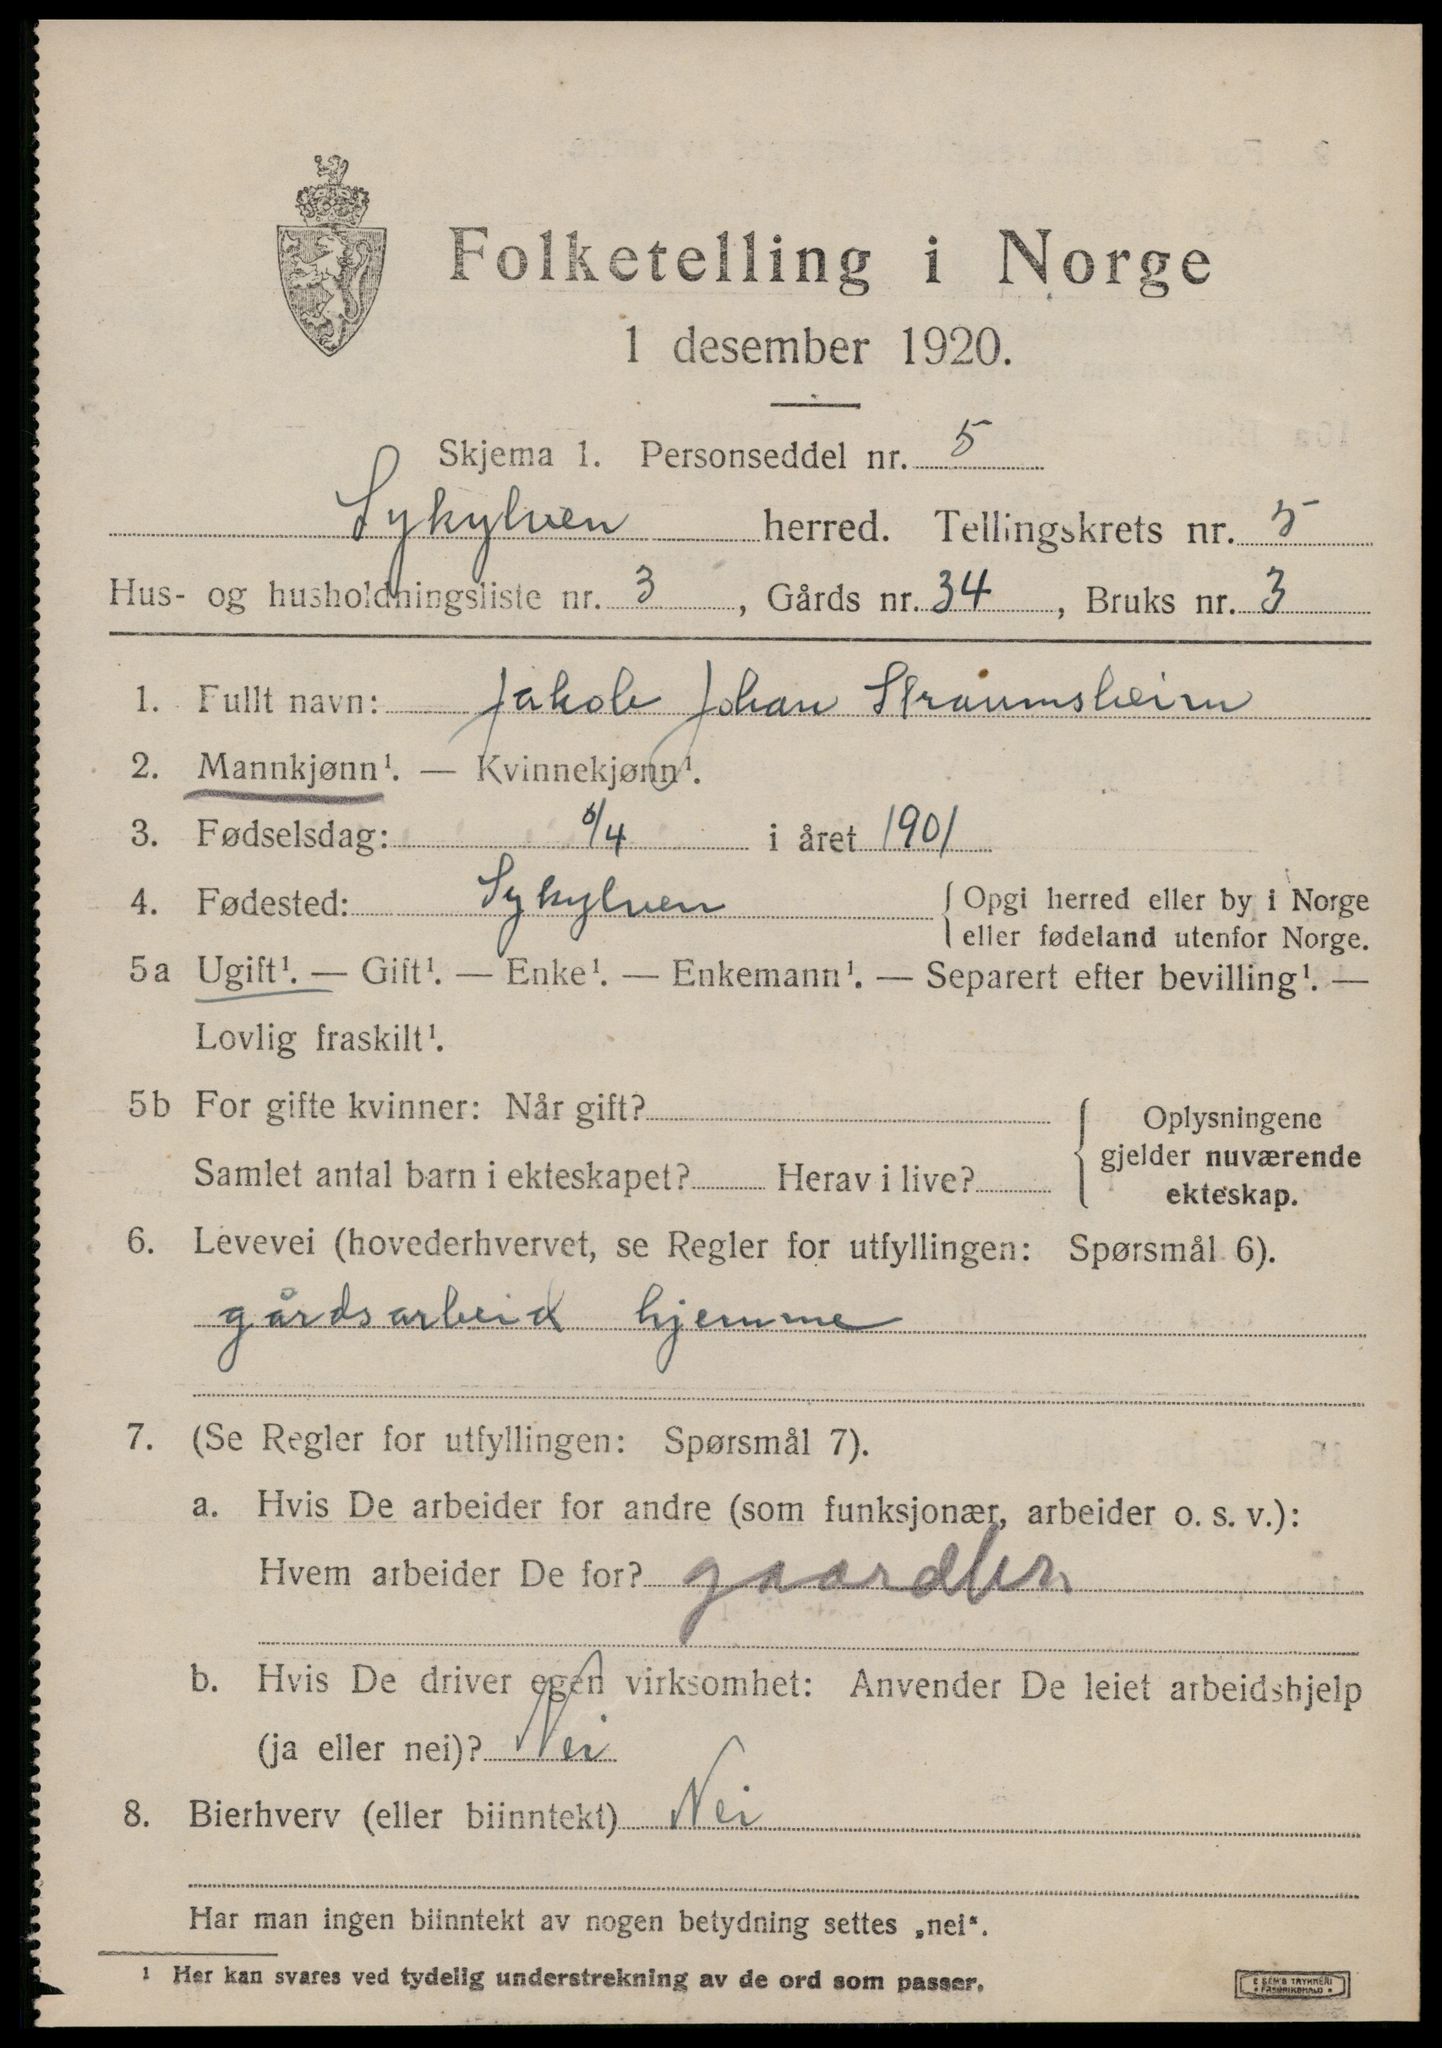 Folketelling i Norge
1 desember 1920.
Skjema 1. Personseddel nr. 5
Sykylven herred. Tellingskrets nr. 5
Hus- og husholdningsliste nr. 3, Gårds nr. 34, Bruks nr. 3
1. Fullt navn: Jakob Johan Straumsheim
2. Mannkjønn¹. — Kvinnekjønn¹.
3. Fødselsdag: 6/4 i året 1901
4. Fødested: Sykylven { Opgi herred eller by i Norge
eller fødeland utenfor Norge.
5a Ugift¹. — Gift¹. — Enke¹. — Enkemann¹. — Separert efter bevilling¹. —
Lovlig fraskilt¹.
5b For gifte kvinner: Når gift? { Oplysningene
gjelder nuværende
Samlet antal barn i ekteskapet? Herav i live?
ekteskap.
6. Levevei (hovederhvervet, se Regler for utfyllingen: Spørsmål 6).
gårdsarbeid hjemme
7. (Se Regler for utfyllingen: Spørsmål 7).
a. Hvis De arbeider for andre (som funksjonær, arbeider o. s. v.):
Hvem arbeider De for?
b. Hvis De driver egen virksomhet: Anvender De leiet arbeidshjelp
(ja eller nei)? Nei
8. Bierhverv (eller biinntekt) Nei
Har man ingen biinntekt av nogen betydning settes „nei“.
¹ Her kan svares ved tydelig understrekning av de ord som passer.